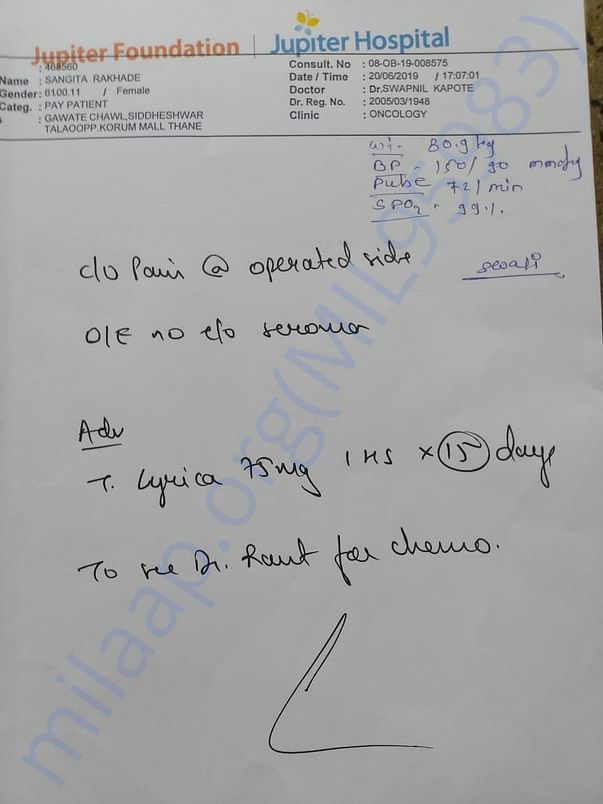 Jupiter Foundation | Jupiter Hospital
: 468560
Name : SANGITA RAKHADE
Gender: 61.00.11 / Female
Categ. : PAY PATIENT
s : GAWATE CHAWL,SIDDHESHWAR
TALAOOPP.KORUM MALL THANE
Consult. No : 08-OB-19-008575
Date / Time : 20/06/2019 / 17:07:01
Doctor : Dr.SWAPNIL KAPOTE
Dr. Reg. No. : 2005/03/1948
Clinic : ONCOLOGY
wt - 80.9 kg
BP - 150/90 mmHg
Pulse 72/min
SPO2 - 99%.
c/o Pain @ operated side
O/E no e/o seroma
Adv
T. Lyrica 75mg 1 HS x 15 days
To see Dr. Raut for chemo.
milaap.org(MIL95983)